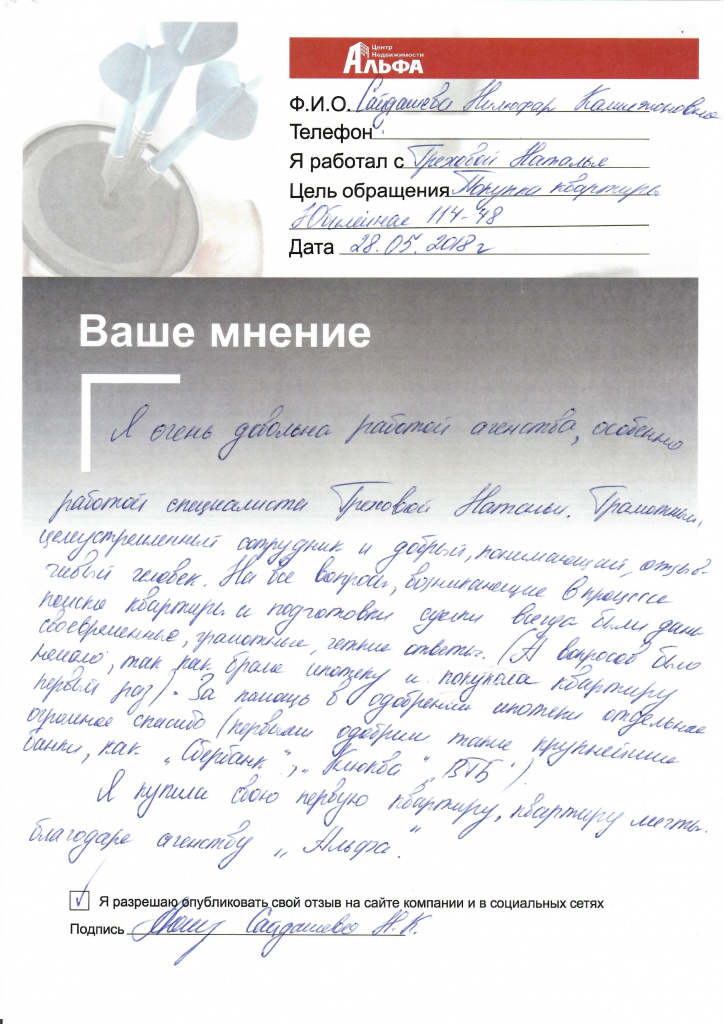 Центр
Недвижимости
АЛЬФА
Ф.И.О. Сайдашева Нилюфар
Телефон
Я работал с Греховой Натальей
Цель обращения Покупка квартиры
Юбилейная 114-48
Дата 28.05.2018 г
Ваше мнение
Я очень довольна работой агенства, особенно
работой специалиста Греховой Натальи. Грамотный,
целеустремленный сотрудник и добрый, понимающий, отзыв-
чивый человек. На все вопросы, возникающие в процессе
поиска квартиры и подготовки сделки всегда были даны
своевременные, грамотные, четкие ответы. (А вопросов было
немало, так как брала ипотеку и покупала квартиру
первый раз). За помощь в одобрении ипотеки отдельное
огромное спасибо (первыми одобрили такие крупнейшие
банки, как „Сбербанк", „ "ВТБ")
Я купила свою первую квартиру, квартиру мечты.
благодаря агенству „Альфа."
Я разрешаю опубликовать свой отзыв на сайте компании и в социальных сетях
Подпись Сайдашева Н.К.